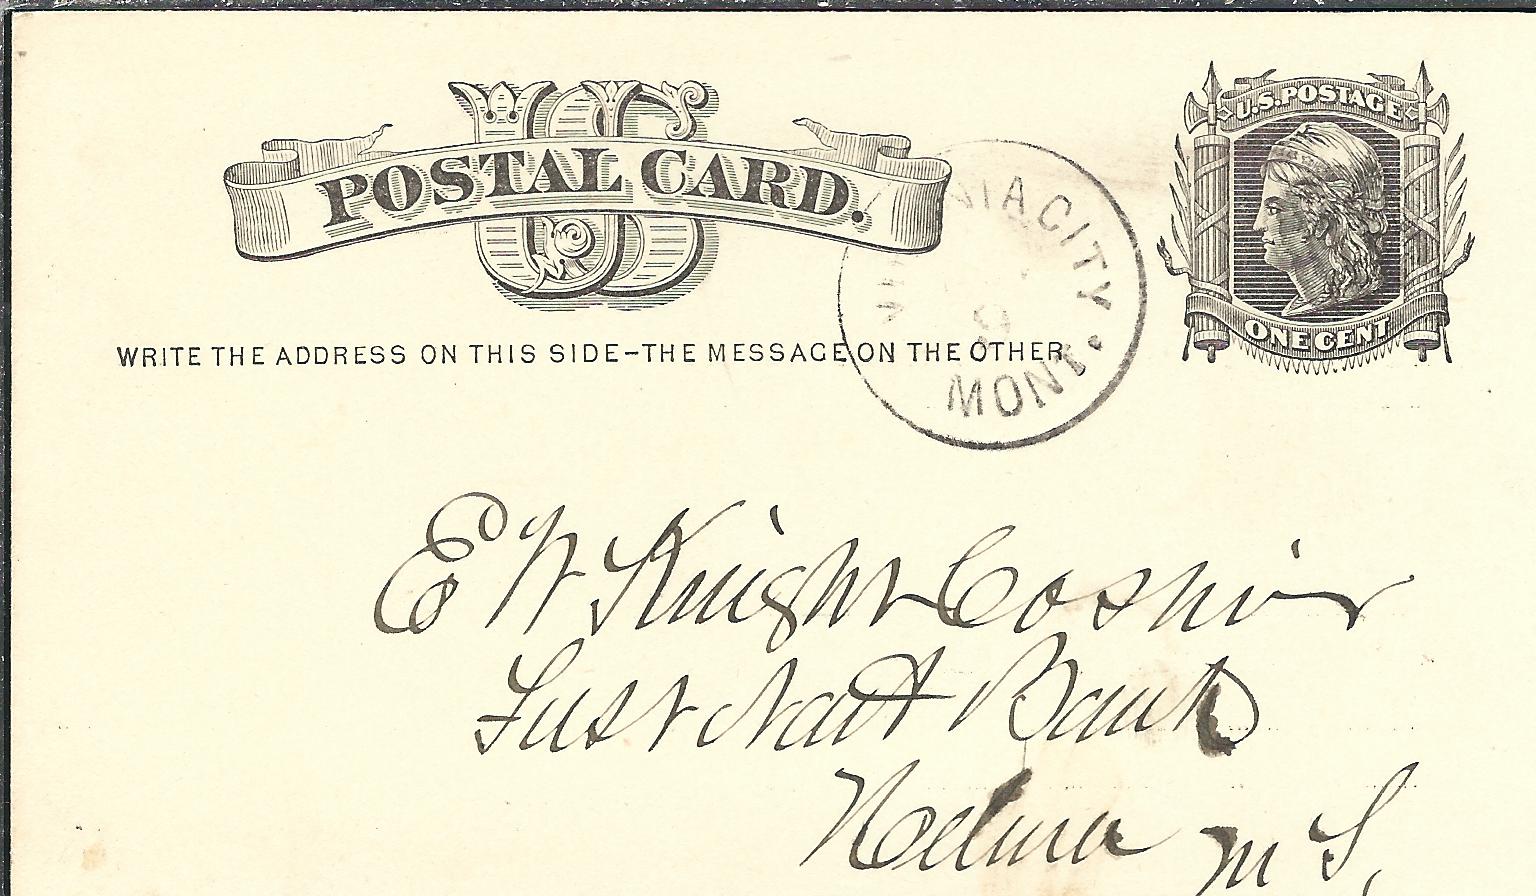 US
POSTAL CARD.
U.S. POSTAGE
ONE CENT
WRITE THE ADDRESS ON THIS SIDE-THE MESSAGE ON THE OTHER
VIRGINIA CITY
9
MONT.
E W Knight Cashier
First Natl Bank
Helena